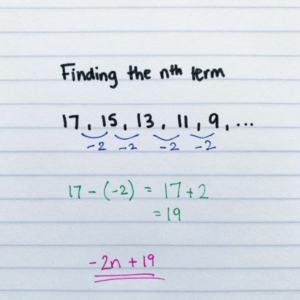 Finding the nth term
17, 15, 13, 11, 9, ...
-2 -2 -2 -2
17 - (-2) = 17 + 2
= 19
-2n + 19